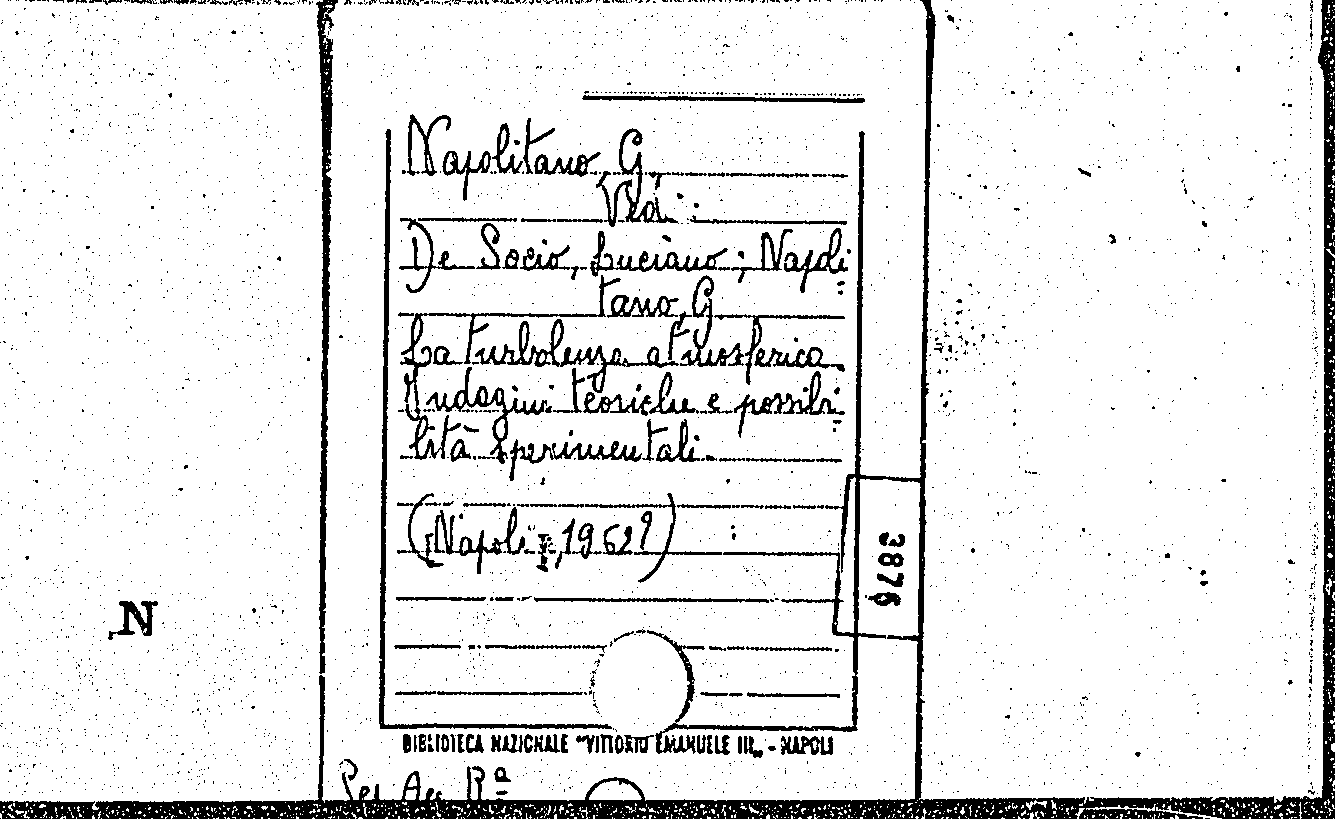 Napolitano, G.
Vedi:
De Socio, Luciano; Napoli=
tano, G.
La turbolenza atmosferica.
Indagini teoriche e possibi=
lità sperimentali.
([Napoli], 1962?)
3876
N
BIBLIOTECA NAZIONALE "VITTORIO EMANUELE III„ - NAPOLI